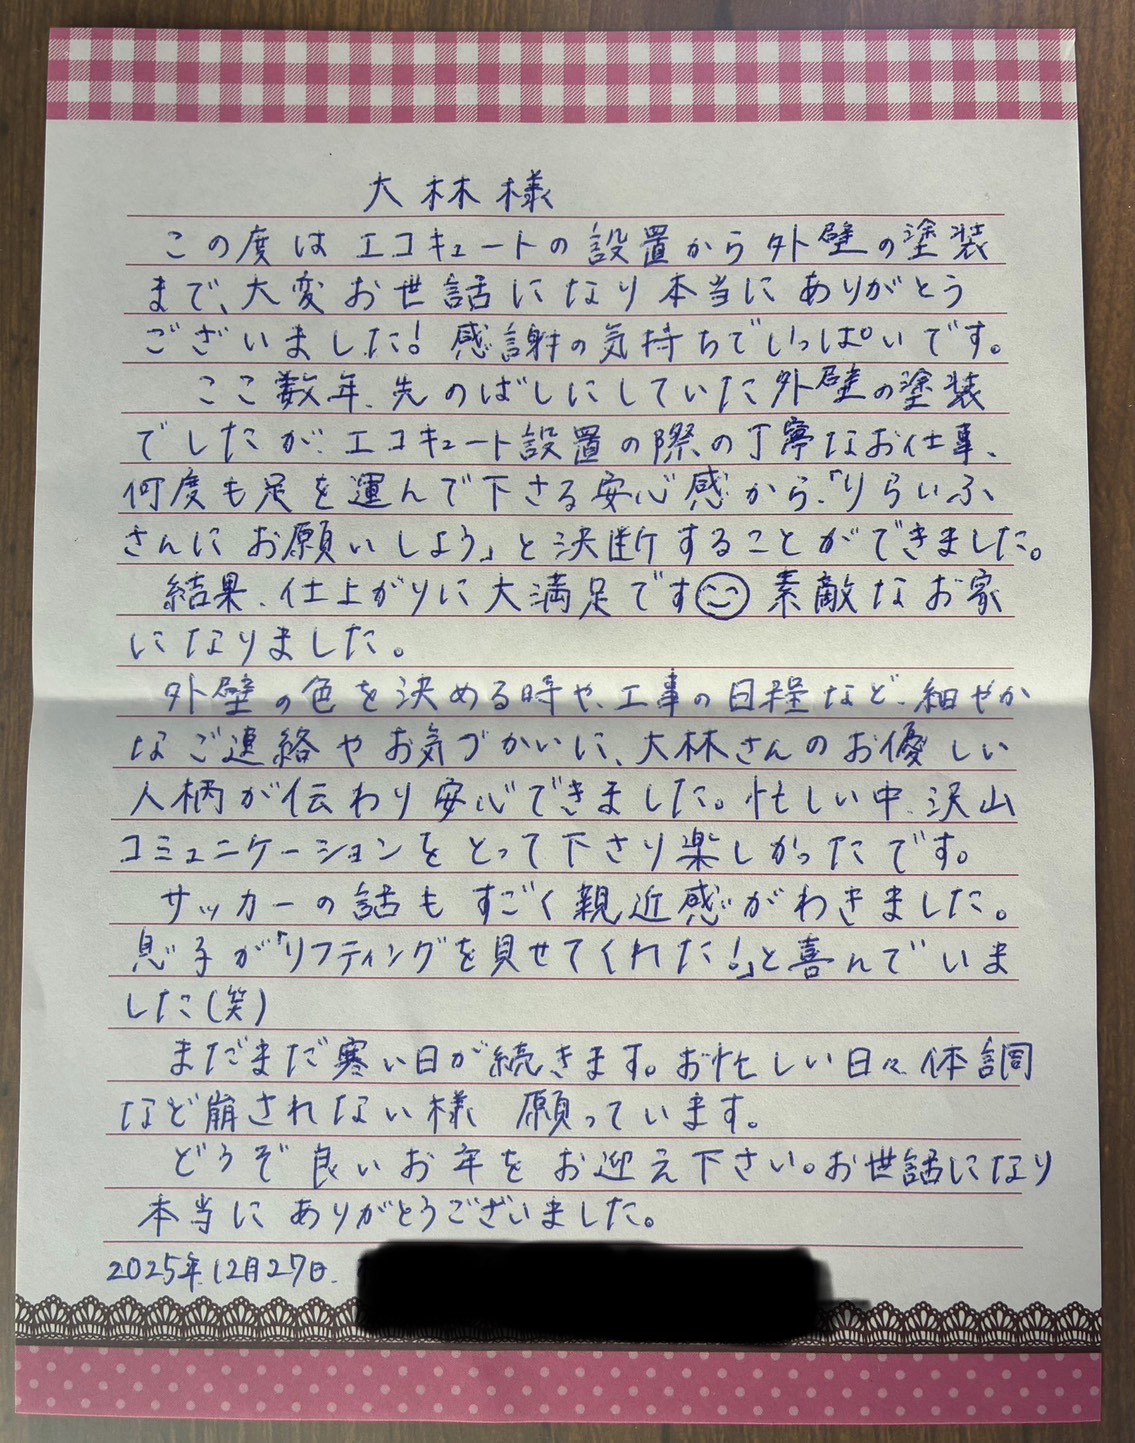 大林様
この度は エコキュートの設置から外壁の塗装
まで、大変お世話になり本当にありがとう
ございました！感謝の気持ちでいっぱいです。
ここ数年、先のばしにしていた外壁の塗装
でしたが、エコキュート設置の際の丁寧なお仕事、
何度も足を運んで下さる安心感から、「りらいふ
さんにお願いしよう」と決断することができました。
結果、仕上がりに大満足です😊素敵なお家
になりました。
外壁の色を決める時や、工事の日程など、細やか
なご連絡やお気づかいに、大林さんのお優しい
人柄が伝わり安心できました。忙しい中、沢山
コミュニケーションをとって下さり楽しかったです。
サッカーの話もすごく親近感がわきました。
息子が「リフティングを見せてくれた！」と喜んでいま
した(笑)
まだまだ寒い日が続きます。お忙しい日々、体調
など崩されない様 願っています。
どうぞ良いお年をお迎え下さい。お世話になり
本当にありがとうございました。
2025年.12月27日.